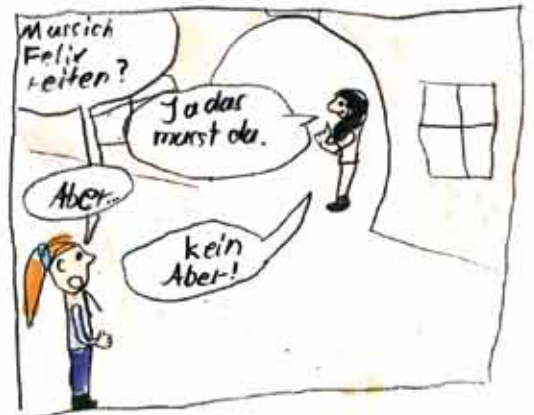 Mussich
Felix
reiten?
Ja das
musst du.
Aber...
kein
Aber!